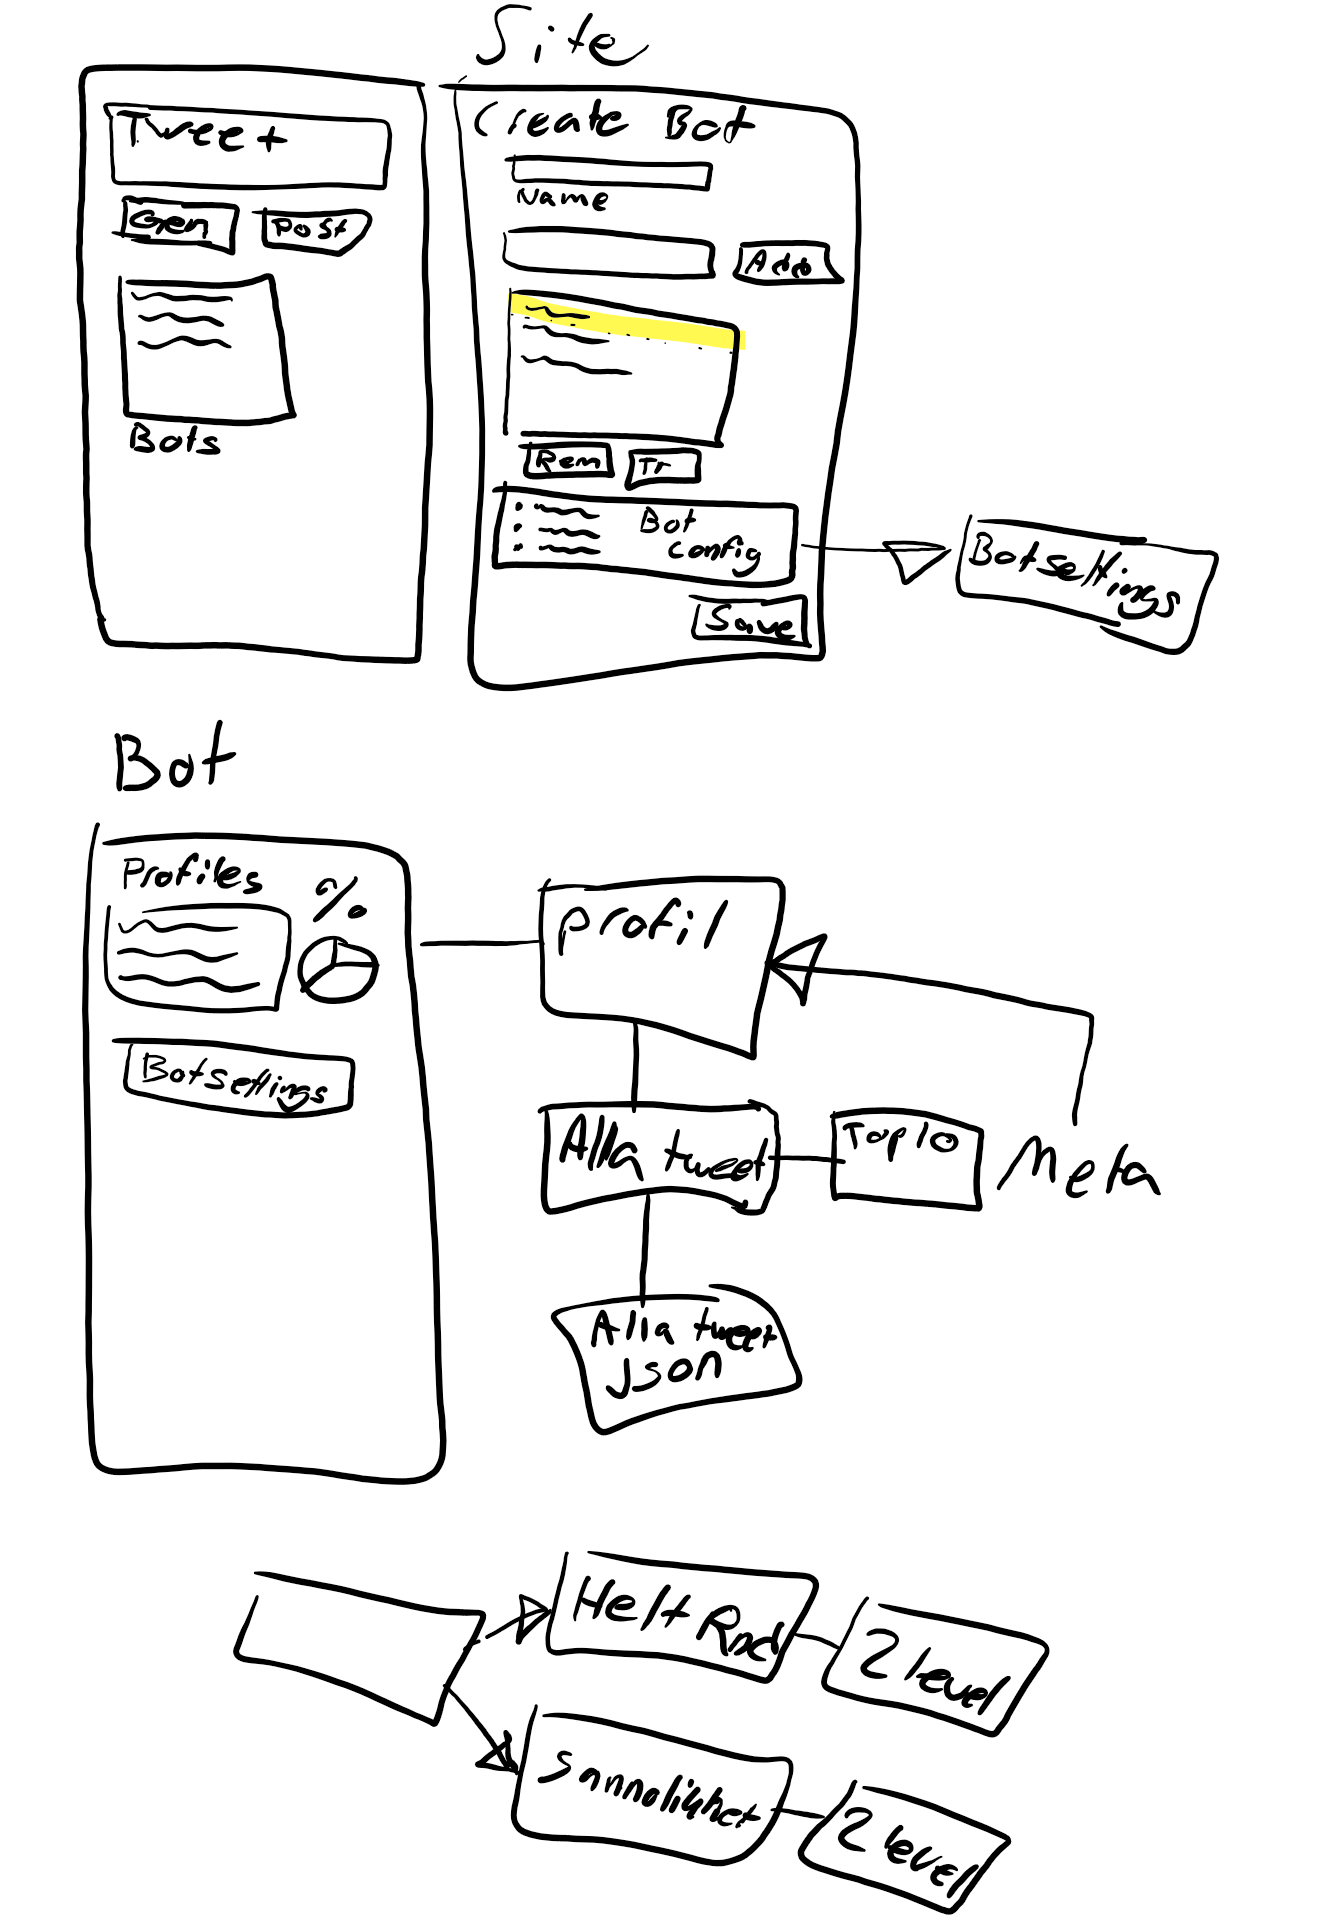 Site
Tweet
Gen
Post
Bots
Create Bot
Name
Add
Rem
Tr
Bot
config
Save
Botsettings
Bot
Profiles
%
Botsettings
profil
Alla tweet
Top10
Meta
Alla tweet
json
Helt Rnd
2 level
Sannolikhet
2 level